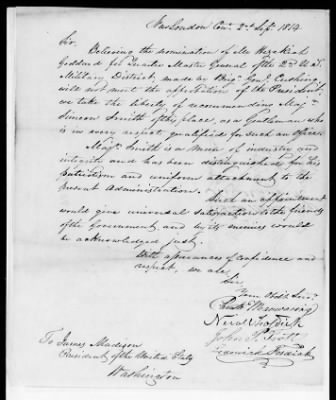 New London Con. 2d Sept. 1814
Sir,
Believing the nomination of Mr Hezekiah
Goddard for Quarter Master General of the 2d U.S.
Military District, made by Brig. Genl. Cushing
will not meet the approbation of the President,
we take the liberty of recommending Maj.
Simeon Smith of this place, as a Gentleman who
is in every respect qualified for such an office.
Maj. Smith is a man of industry and
integrity and has been distinguished for his
patriotism and uniform attachment to the
present Administration.
Such an appointment
would give universal satisfaction to the friends
of the Government, and by its enemies would
be acknowledged just.
With assurances of confidence and
respect, we are
Sir,
Your Obdt. Servts
Nicoll Fosdick
John
Fosdick
To James Madison
President of the United States
Washington